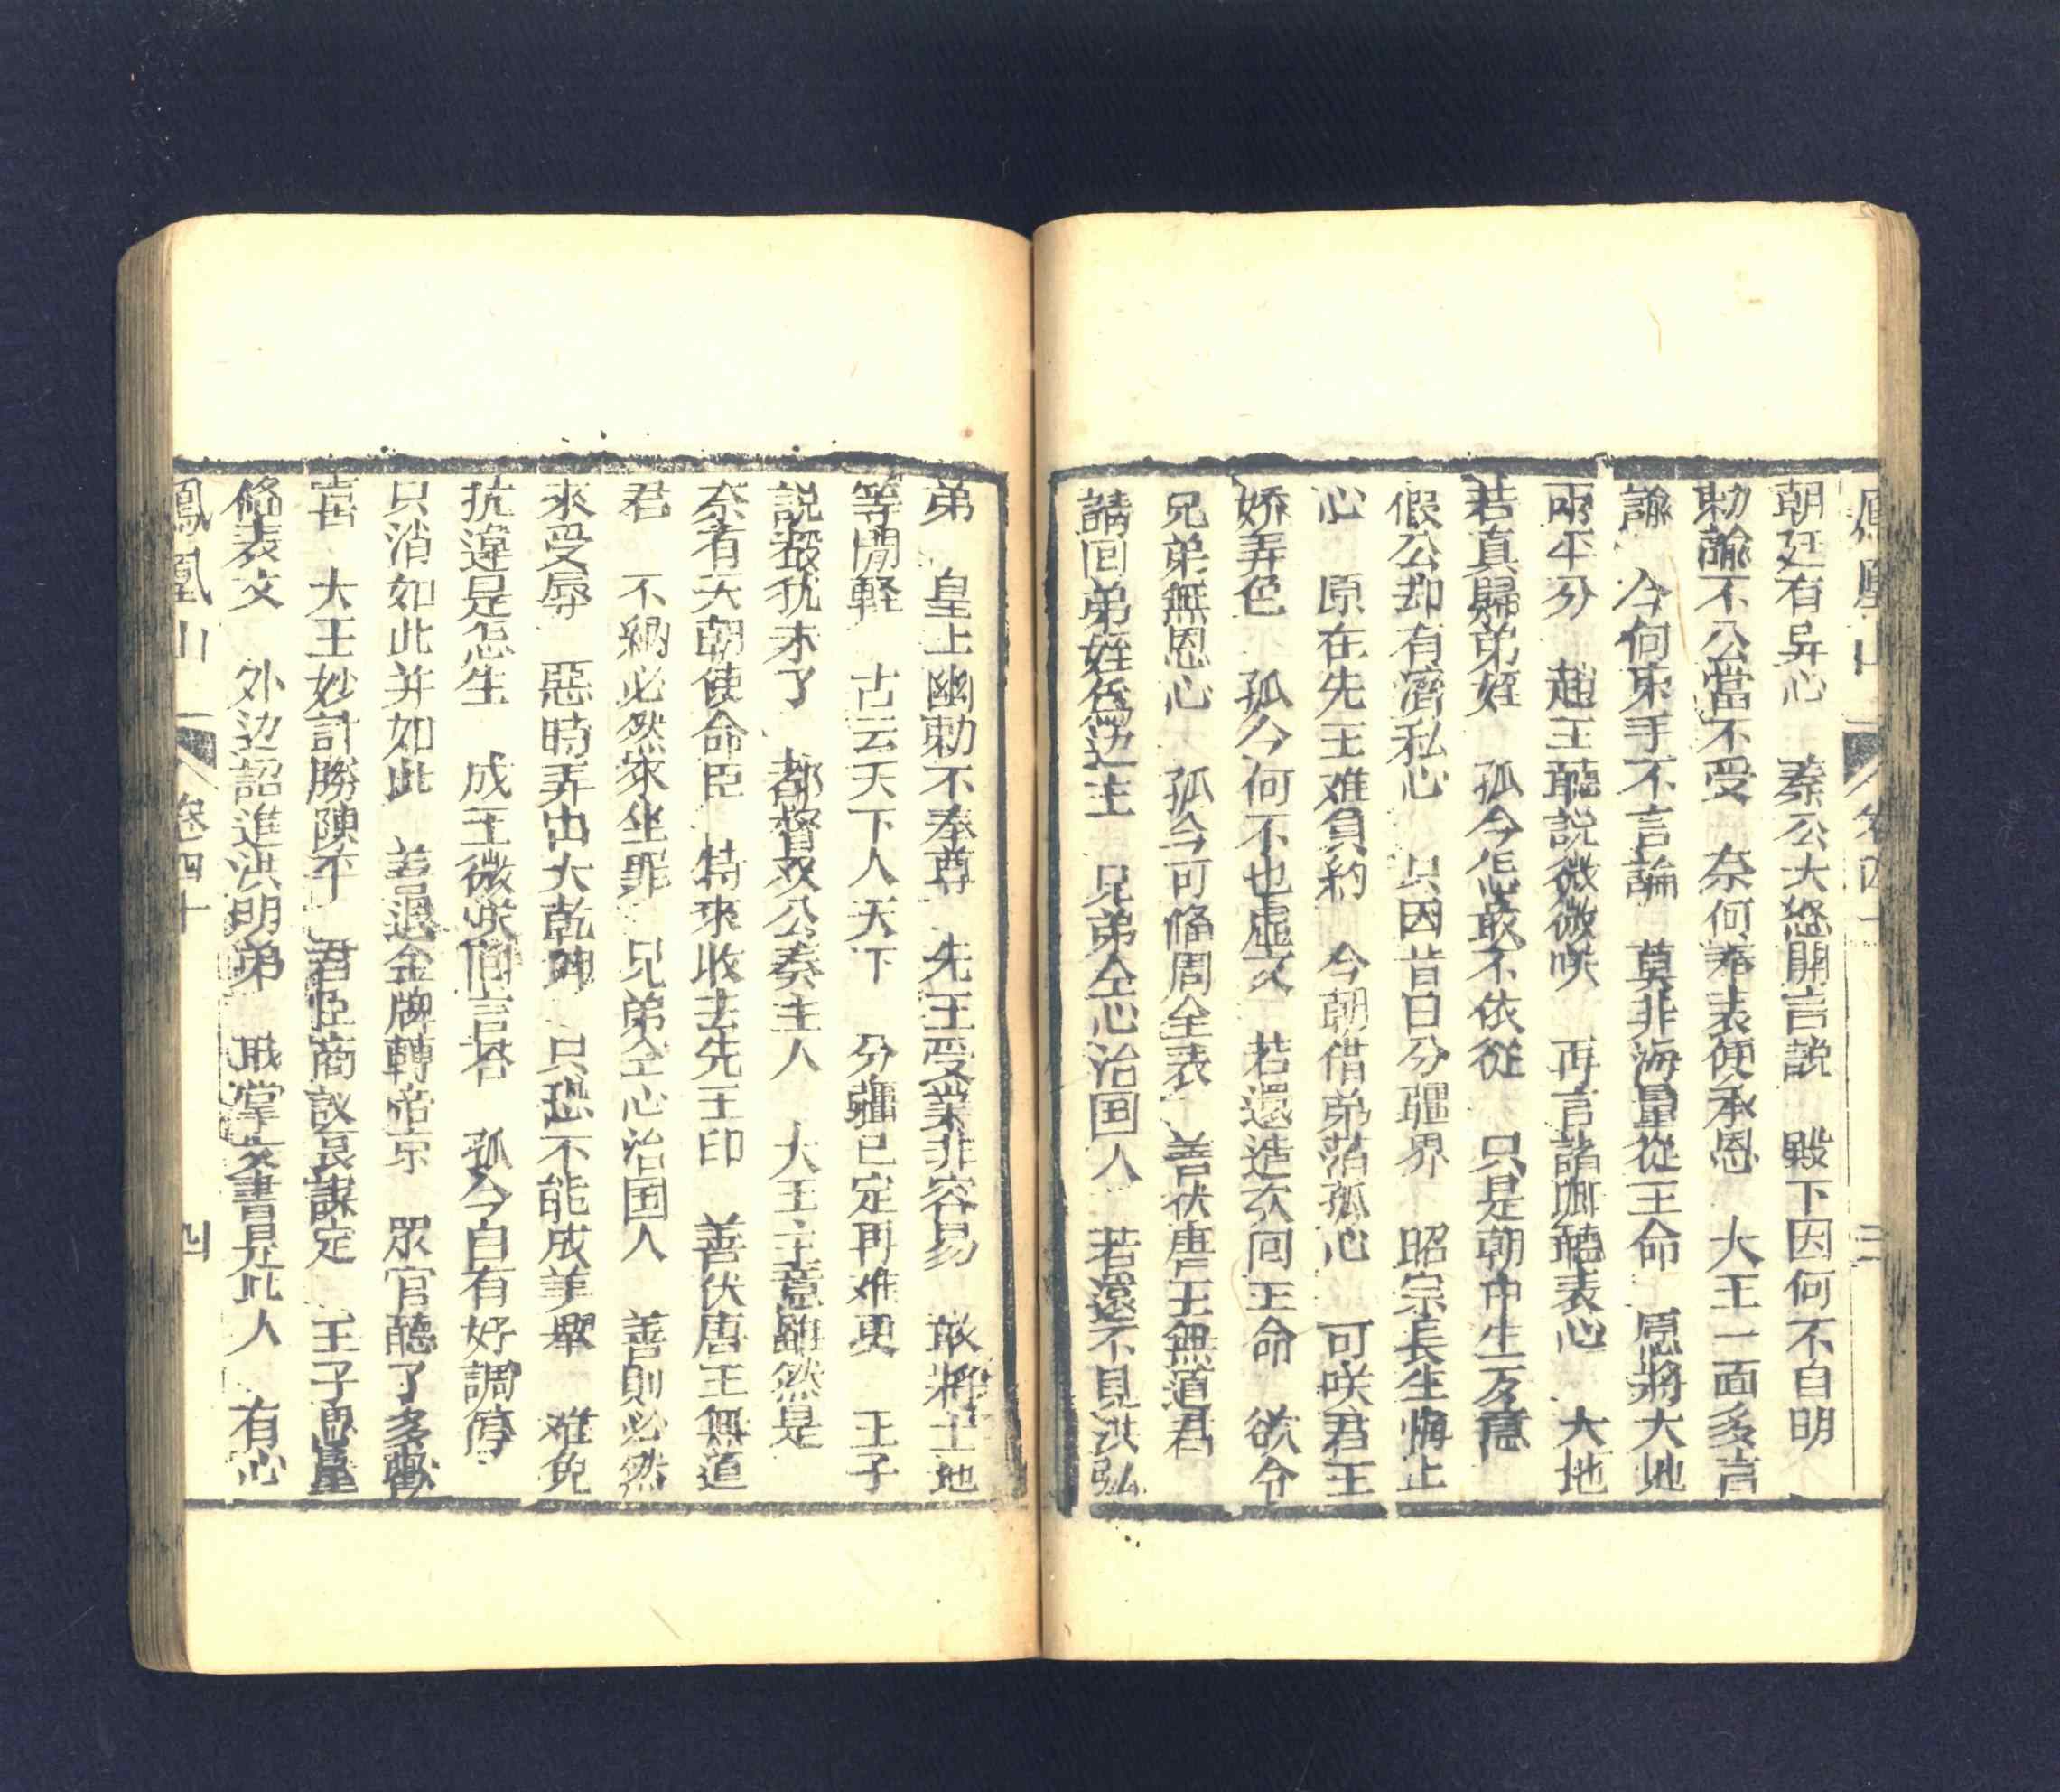 鳳凰山 卷四十 三
朝廷有异心 秦公大怒開言説 殿下因何不自明
勅諭不公當不受 奈何奉表便承恩 大王一面多言
諭 今何束手不言論 莫非海量從王命 愿將大地
兩平分 趙王聽説微微咲 再言諸卿聽表心 大地
若真歸弟姪 孤今怎敢不依從 只是朝中生歹意
假公却有濟私心 只因昔日分疆界 昭宗長生悔止
心 原在先王难負約 今朝借弟落孤心 可咲君王
娇弄色 孤今何不也虚文 若還造次囘王命 欲令
兄弟無恩心 孤今可脩周全表 善伏唐王無道君
請回弟姪為边主 兄弟仝心治国人 若還不見洪弘
弟 皇上幽勅不奉尊 先王受業非容易 敢將土地
等閒軽 古云天下人天下 分疆已定再难更 王子
説蔱犹未了 都督双公奏主人 大王主意雖然是
奈有天朝使命臣 特來收去先王印 善伏唐王無道
君 不納必然來坐罪 兄弟仝心治国人 善則必然
來受辱 惡時弄出大乾坤 只恐不能成美舉 难免
抗違是怎生 成王微咲陌言答 孤今自有好調停
只消如此并如此 善退金牌轉帝京 眾官聽了多歡
喜 大王妙計勝陳平 君臣商議衷謀定 王子思量
脩表文 外边詔進洪明弟 職掌文書見此人 有心
鳳凰山 卷四十 四